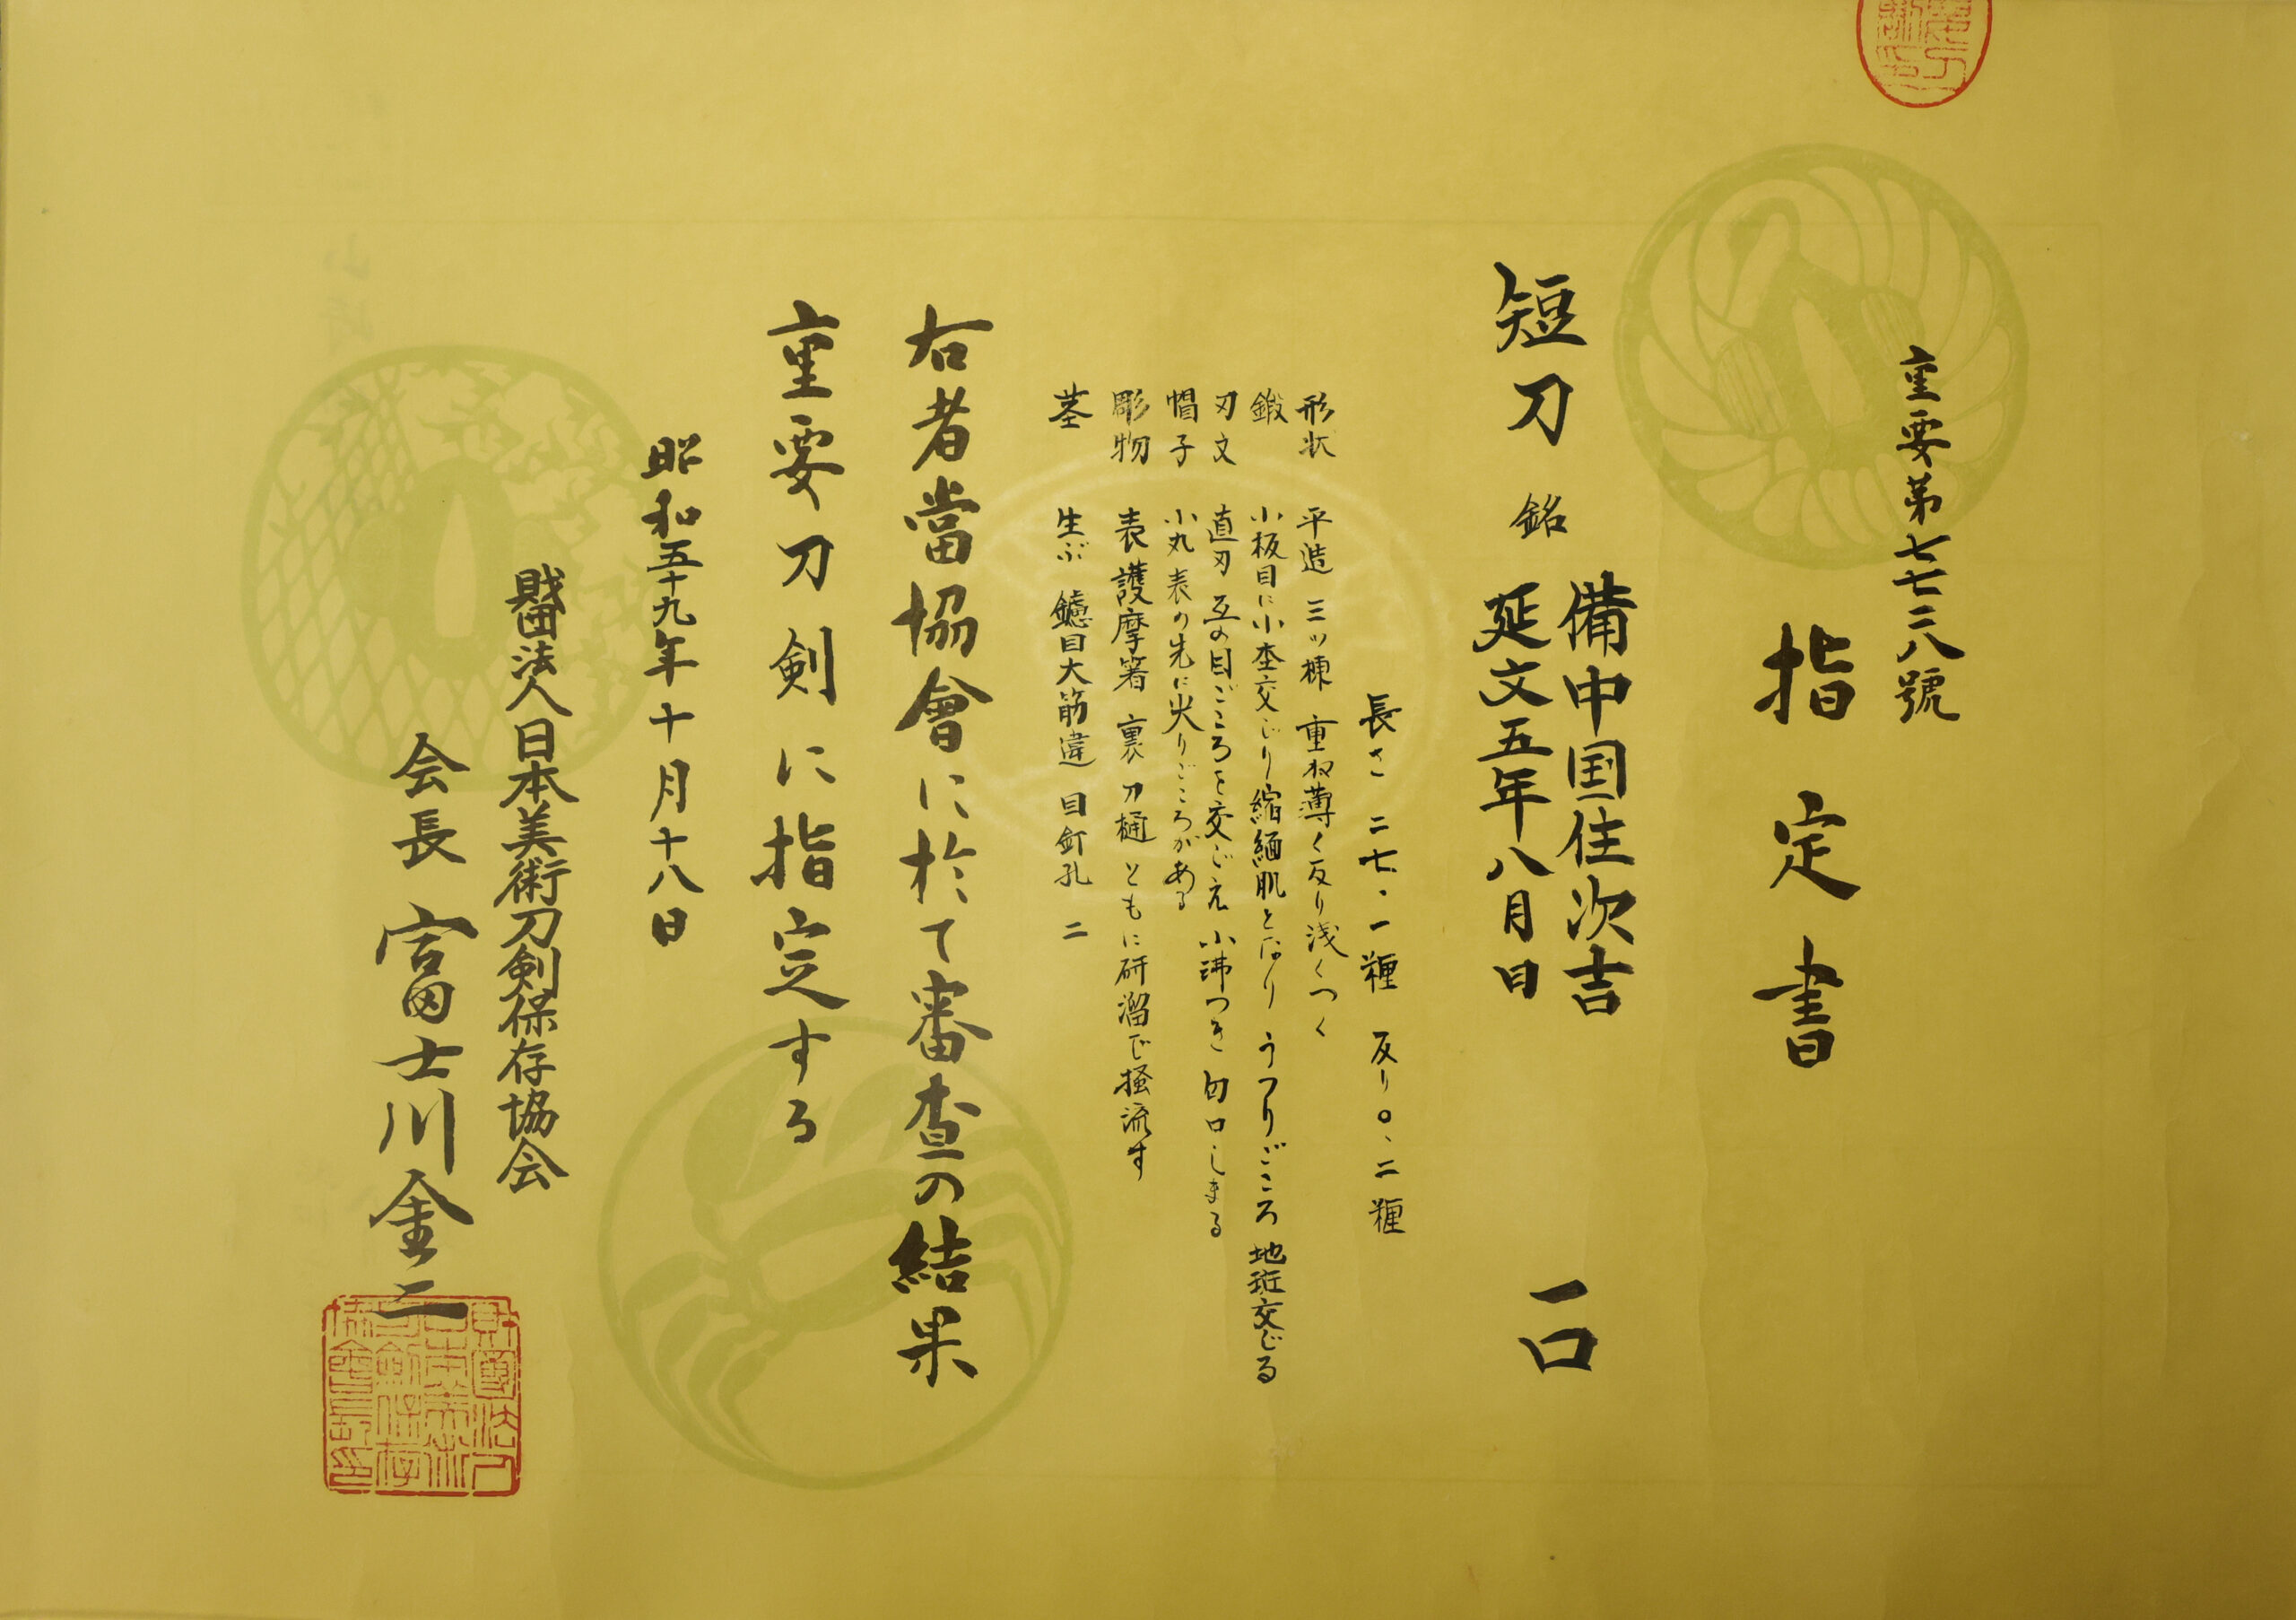 重要第七七二八號
指定書
短刀 銘 備中国住次吉
延文五年八月日
一口
長さ 二七、一糎 反り〇、二糎
形状 平造 三ツ棟 重ね薄く反り浅くつく
鍛 小板目に小杢交じり縮緬肌となり うつりごころ 地斑交じる
刃文 直刃 互の目ごころを交じえ 小沸つき 匂口しまる
帽子 小丸 表の先に尖りごころがある
彫物 表 護摩箸 裏 刀樋 ともに研溜で掻流す
茎 生ぶ 鑢目大筋違 目釘孔 二
右者當協會に於て審査の結果
重要刀剣に指定する
昭和五十九年十月十八日
財団法人日本美術刀剣保存協会
会長 富士川金二